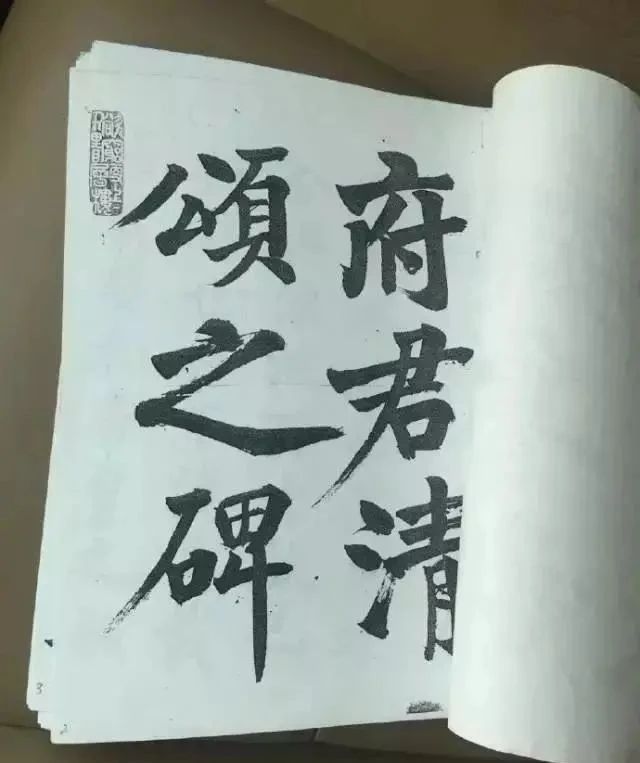 府君清
頌之碑
3
2